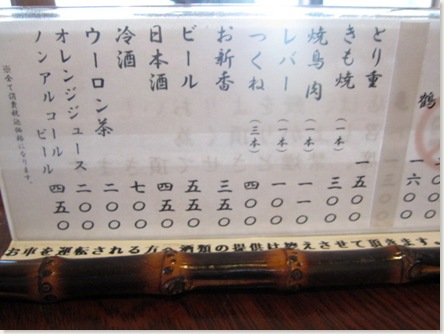 鶴
とり重
きも焼（一本） 三〇〇
焼鳥 肉（一本） 一一〇
レバー（一本） 一一〇
つくね（三本） 四五〇
お新香 三五〇
ビール 五五〇
日本酒 四五〇
冷酒 七〇〇
ウーロン茶 二〇〇
オレンジジュース 二〇〇
ノンアルコールビール 四五〇
※全て消費税込価格になります。
お車を運転される方へ酒類の提供は控えさせて頂きます